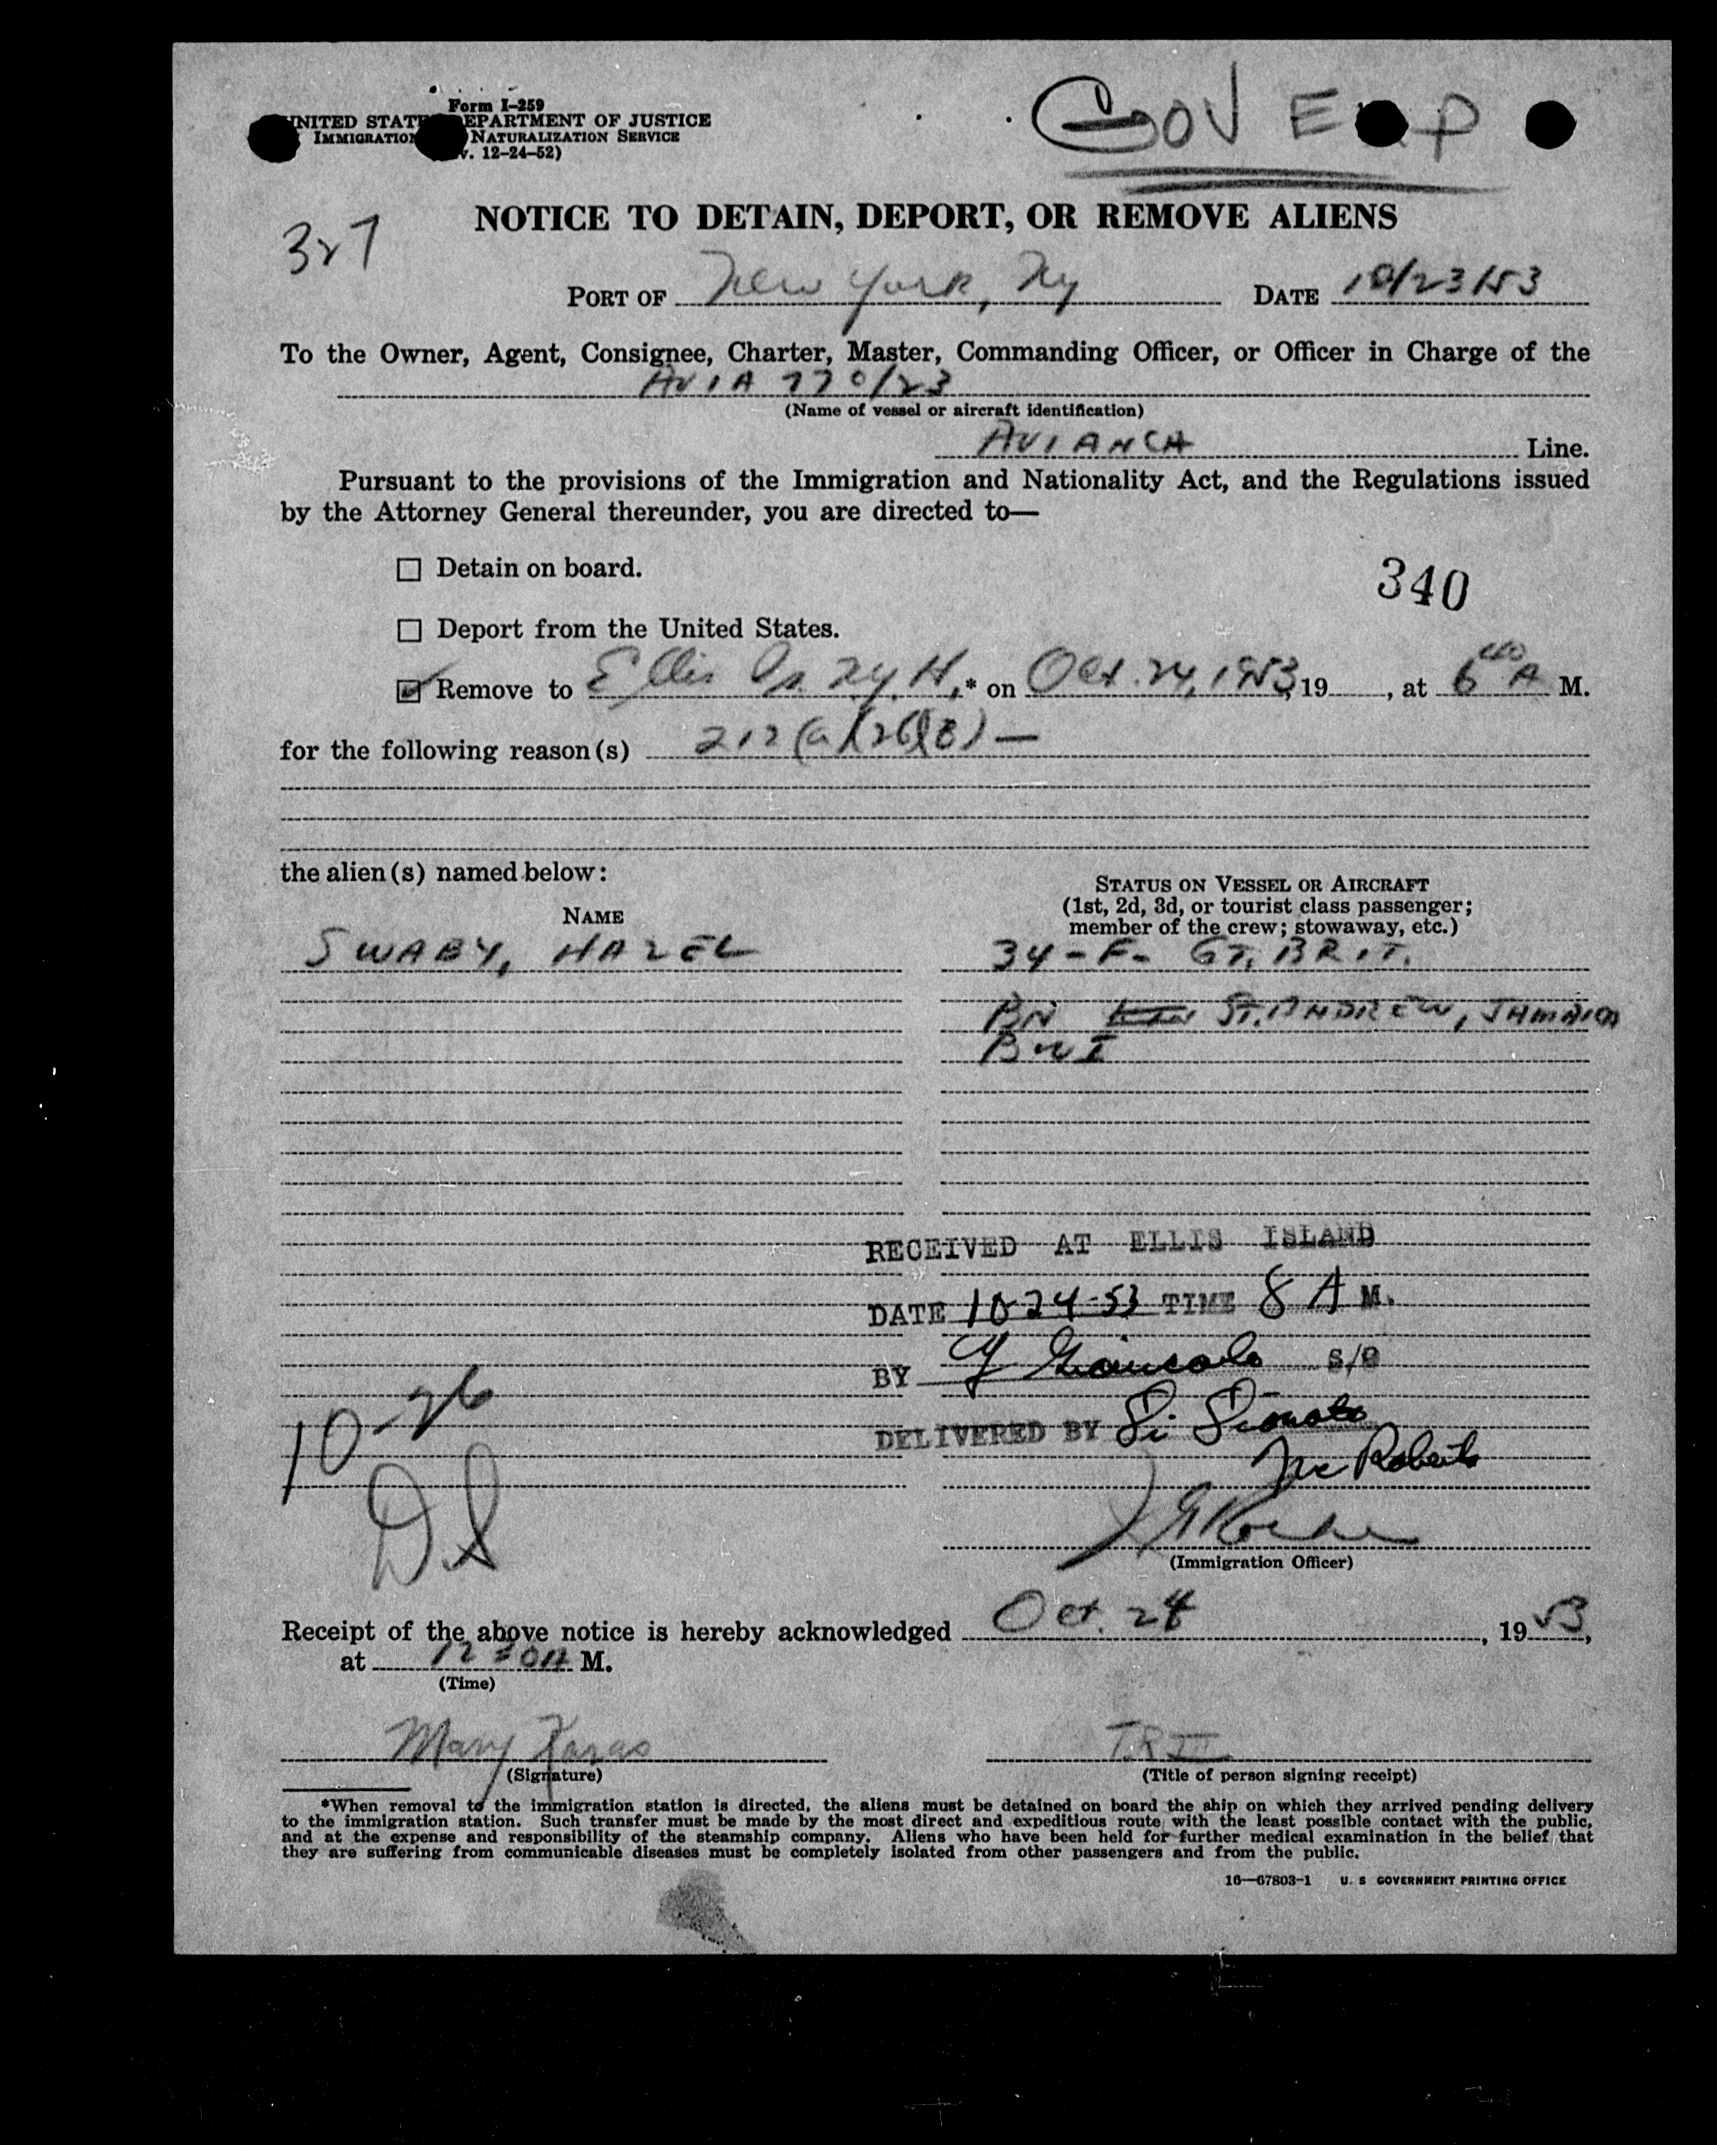 Form I-259
UNITED STATES DEPARTMENT OF JUSTICE
IMMIGRATION NATURALIZATION SERVICE
v. 12-24-52)
GOV EXP
NOTICE TO DETAIN, DEPORT, OR REMOVE ALIENS
327
PORT OF New York, Ny DATE 10/23/53
To the Owner, Agent, Consignee, Charter, Master, Commanding Officer, or Officer in Charge of the
AVIA 770/23
(Name of vessel or aircraft identification)
AVIANCA Line.
Pursuant to the provisions of the Immigration and Nationality Act, and the Regulations issued
by the Attorney General thereunder, you are directed to—
Detain on board.
340
Deport from the United States.
Remove to Ellis Is. N.Y.H.,* on Oct. 24, 1953, 19 , at 6 00 A M.
for the following reason(s) 212(a)(26)(B) —
the alien(s) named below:
STATUS ON VESSEL OR AIRCRAFT
NAME
(1st, 2d, 3d, or tourist class passenger;
member of the crew; stowaway, etc.)
SWABY, HAZEL 34 - F - GT. BRIT.
BN ST. ANDREW, JAMAICA
BWI
RECEIVED AT ELLIS ISLAND
DATE 10-24-53 TIME 8 A M.
BY
DELIVERED BY Di Donato
Mc Roberts
10-26
(Immigration Officer)
Receipt of the above notice is hereby acknowledged Oct. 24, 1953,
at 12 30A M.
(Time)
Mary Karas
(Signature)
(Title of person signing receipt)
*When removal to the immigration station is directed, the aliens must be detained on board the ship on which they arrived pending delivery
to the immigration station. Such transfer must be made by the most direct and expeditious route with the least possible contact with the public,
and at the expense and responsibility of the steamship company. Aliens who have been held for further medical examination in the belief that
they are suffering from communicable diseases must be completely isolated from other passengers and from the public.
16—67803-1 U. S. GOVERNMENT PRINTING OFFICE